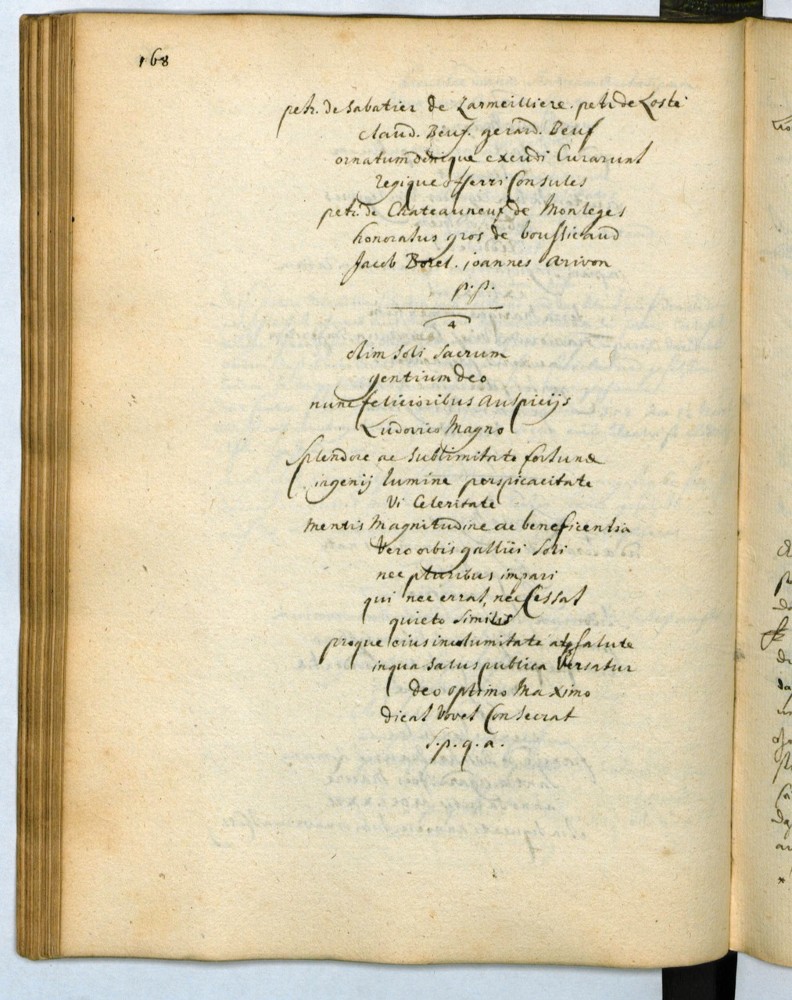 168
petr. de Sabatier de Larmeilliere. petr. de Loste
claud. Beuf. gerard. Deuf
ornatum denique exendi Curarunt
Regique offerri Consules
petr. de Chateauneuf de Monleges
honoratus gros de boussicaud
Jacob Borel. joannes Arivon
p. p.
4
olim soli sacrum
gentium deo
nunc felicioribus Auspicijs
Ludovico Magno
Splendore ac Sublimitate fortunæ
ingenij lumine perspicacitate
Vi Celeritate
mentis Magnitudine ac beneficentia
Vero orbis gallici soli
nec pluribus impari
qui nec errat, nec Cessat
quieto similis
proque eius incolumitate atq salute
in qua salus publica Versatur
deo optimo Maximo
dicat Vovet Consecrat
S. p. q. a.